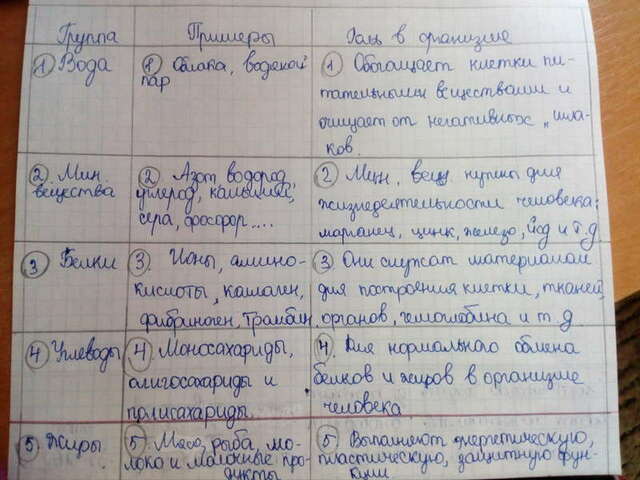 Группа Примеры Роль в организме
① Вода
① Облака, водяной
пар
① Обогащает клетки пи-
тательными веществами и
очищает от негативных "шла-
ков.
② Мин.
вещества
② Азот водород,
углерод, кальций,
сера, фосфор....
② Мин. вещ. нужны для
жизнедеятельности человека:
марганец, цинк, железо, йод и т.д
③ Белки
③. Ионы, амино-
кислоты, коллаген,
фибриноген, тромбин.
③. Они служат материалом
для построения клетки, тканей,
органов, гемоглобина и т.д.
④ Углеводы
④. Моносахариды,
олигосахариды и
полисахариды.
④. Для нормального обмена
белков и жиров в организме
человека.
⑤. Жиры.
⑤. Мясо, рыба, мо-
локо и молочные про-
дукты
⑤. Выполняют энергетическую,
пластическую, защитную фун-
кции.